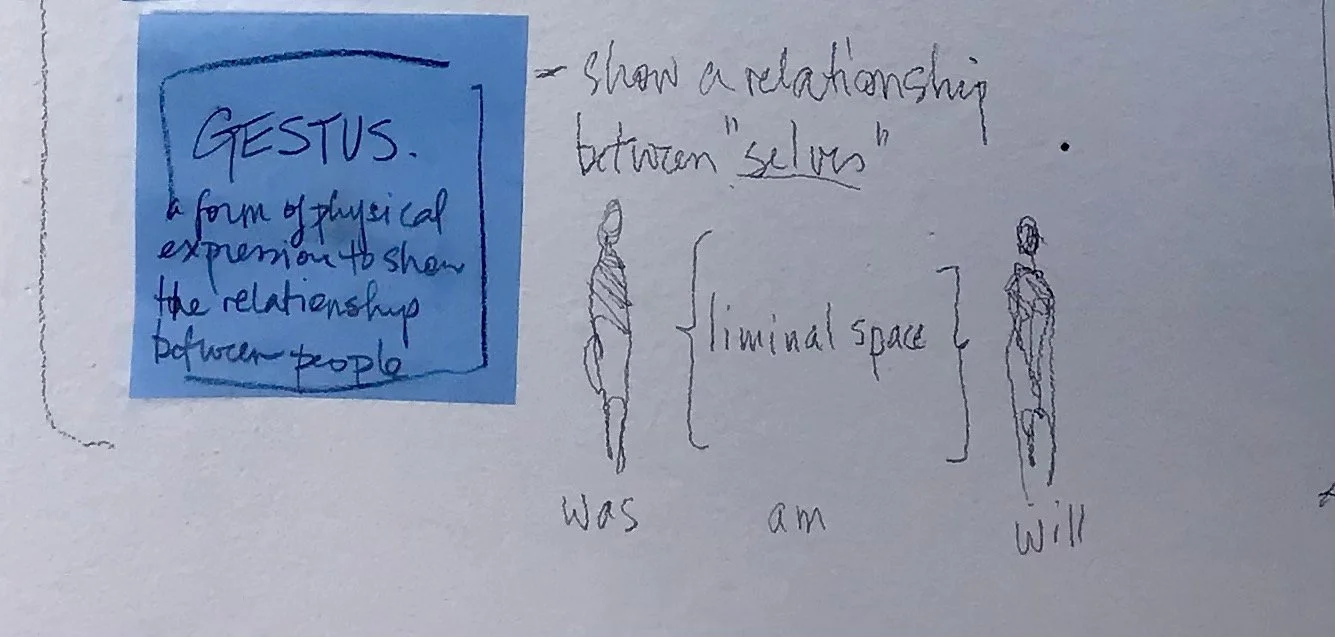 GESTUS.
a form of physical
expression to show
the relationship
between people
- show a relationship
between "selves"
{liminal space}
was am will